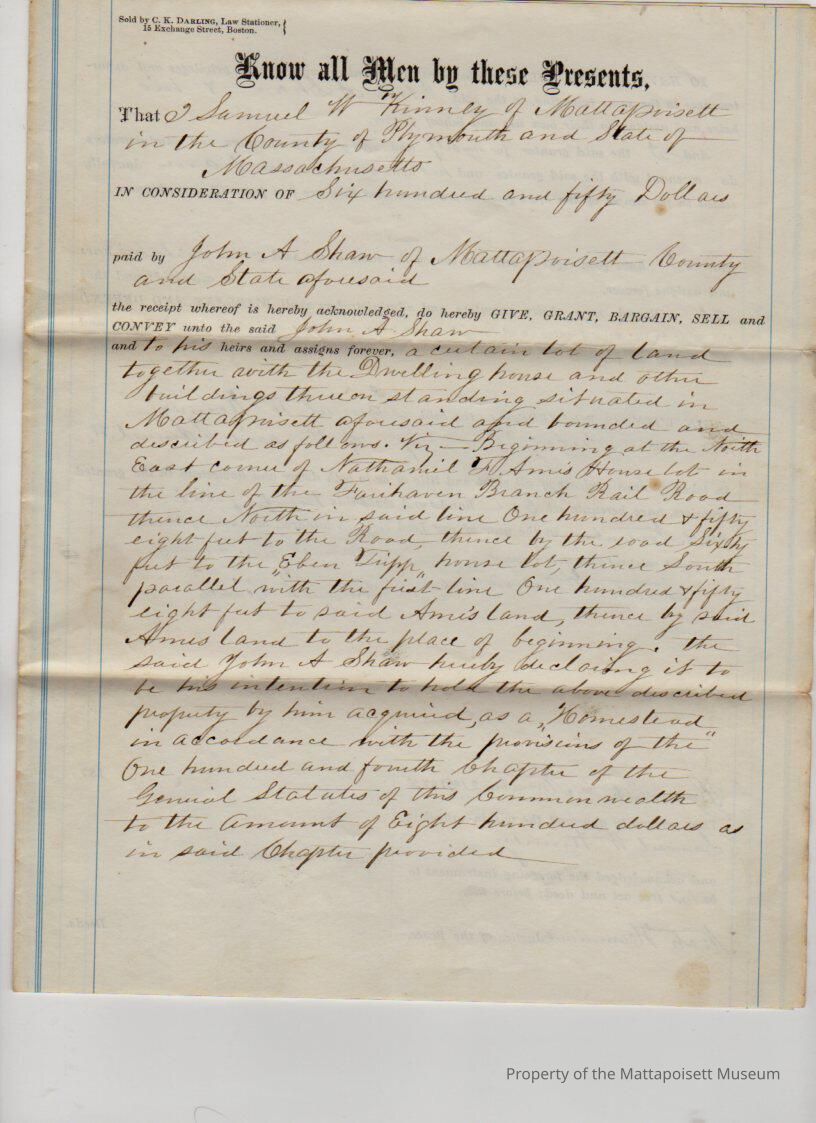 Sold by C. K. DARLING, Law Stationer,
15 Exchange Street, Boston.
Know all Men by these Presents,
That I Samuel W Kinney of Mattapoisett
in the County of Plymouth and State of
Massachusetts
IN CONSIDERATION OF Six hundred and fifty Dollars
paid by John A Shaw of Mattapoisett County
and State aforesaid
the receipt whereof is hereby acknowledged, do hereby GIVE, GRANT, BARGAIN, SELL and
CONVEY unto the said John A Shaw
and to his heirs and assigns forever, a certain lot of land
together with the Dwelling house and other
buildings thereon standing situated in
Mattapoisett aforesaid and bounded and
described as follows. Viz — Beginning at the North
East corner of Nathaniel F Ames House lot in
the line of the Fairhaven Branch Rail Road
thence North in said line One hundred & fifty
eight feet to the Road, thence by the road Sixty
feet to the "Eben Tripp" house lot, thence South
parallel with the first line One hundred & fifty
eight feet to said Ames land, thence by said
Ames land to the place of beginning. the
said John A Shaw hereby declaring it to
be his intention to hold the above described
property by him acquired, as a "Homestead
in accordance with the provisions of the"
One hundred and fourth Chapter of the
General Statutes of this Commonwealth
to the amount of Eight hundred dollars as
in said Chapter provided
Property of the Mattapoisett Museum